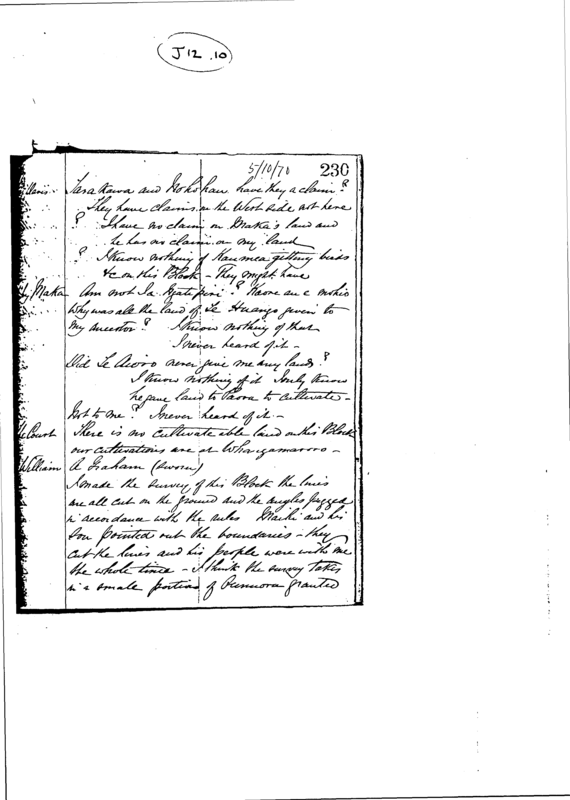 J12.10
5/10/70 230
Tarakawa and Hokohau have they a claim?
They have claims on the West side not here
? I have no claim on Maka's land and
he has no claim on my land
? I know nothing of Kaumea getting birds
&c on this Block - They might have
by Maka Am not I a
Why was all the land of Te Huango given to
my ancestor? I know nothing of that
I never heard of it -
Did Te never give me any land?
I know nothing of it I only know
he gave land to Paora to cultivate -
Not to me? I never heard of it -
Court There is no cultivateable land on this Block
our cultivations are at Whangamaroro -
William A Graham (sworn)
I made the survey of this Block the lines
are all cut on the ground and the angles pegged
in accordance with the rules and his
son pointed out the boundaries - they
cut the lines and his people were with me
the whole time - I think the survey takes
in a small portion of granted